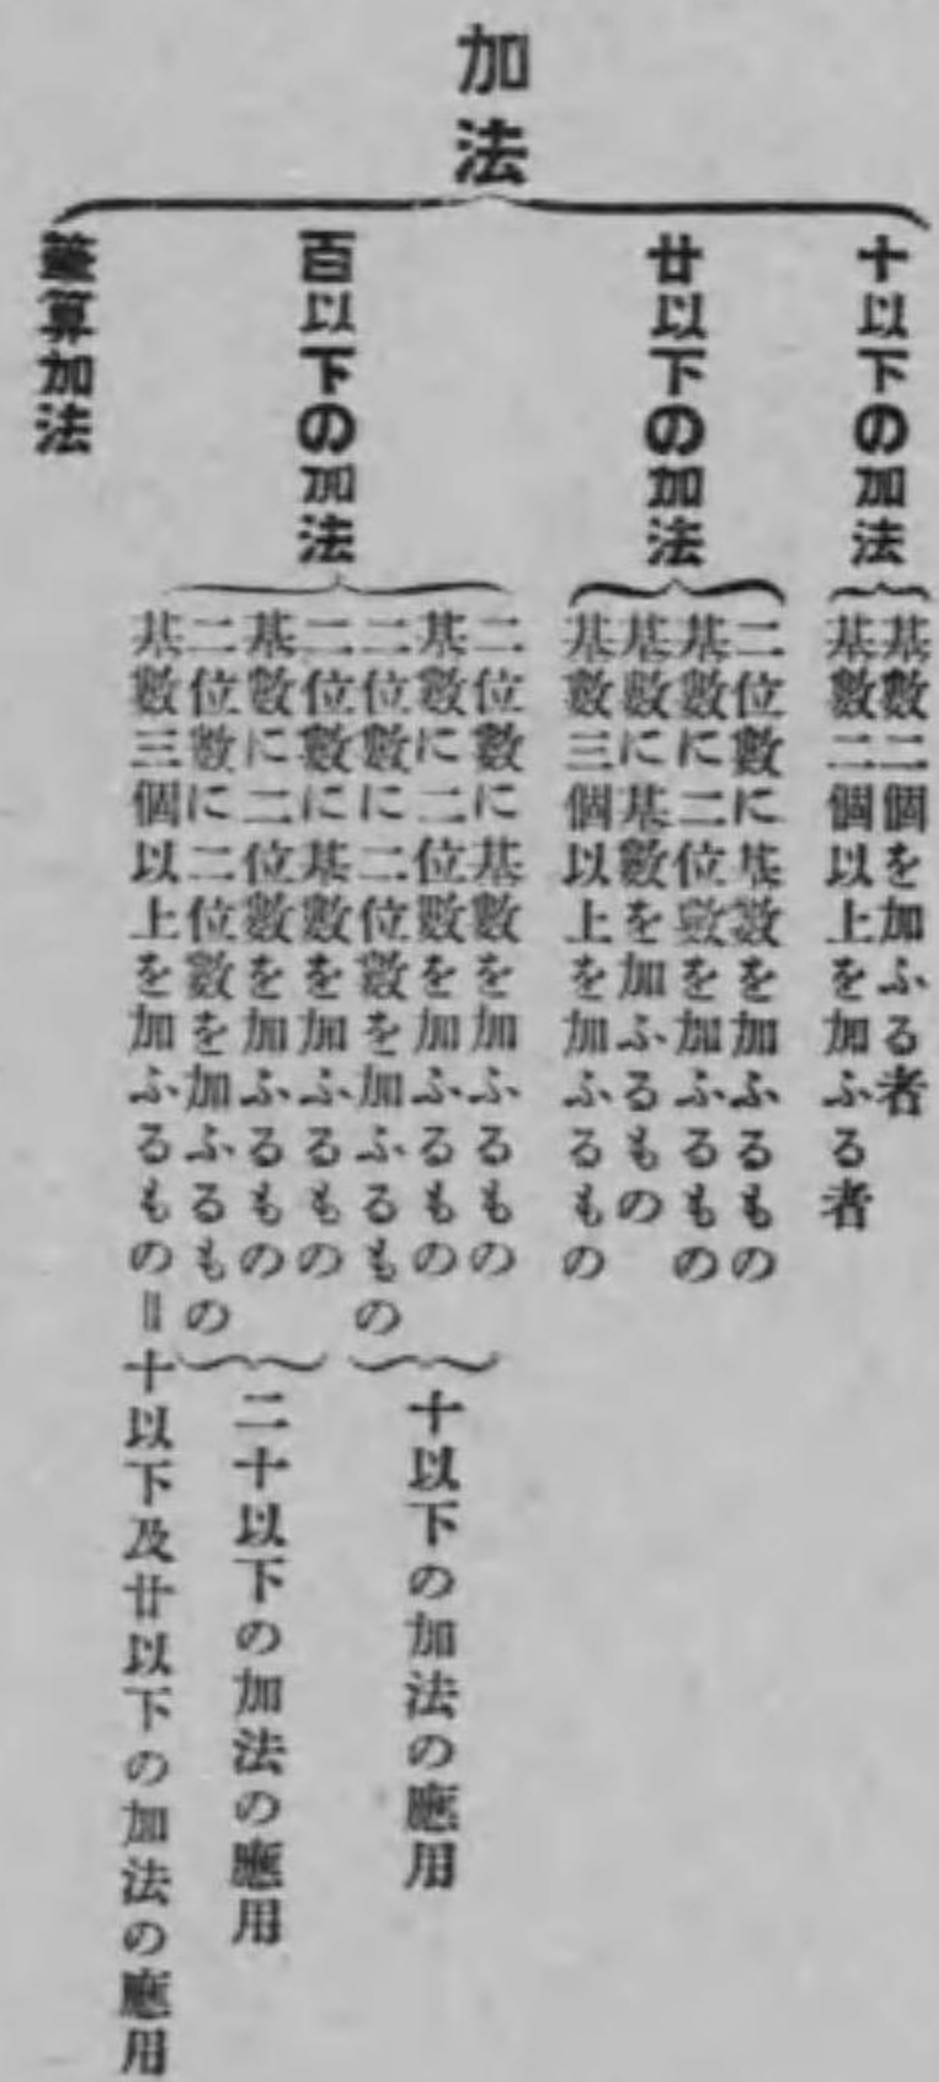 加法
十以下の加法
基數二個を加ふる者
基數二個以上を加ふる者
廿以下の加法
二位數に基數を加ふるもの
基數に二位數を加ふるもの
基數に基數を加ふるもの
基數三個以上を加ふるもの
百以下の加法
二位數に基數を加ふるもの
基數に二位數を加ふるもの
二位數に二位數を加ふるもの
十以下の加法の應用
二位數に基數を加ふるもの
基數に二位數を加ふるもの
二位數に二位數を加ふるもの
二十以下の加法の應用
基數三個以上を加ふるもの＝十以下及廿以下の加法の應用
筆算加法